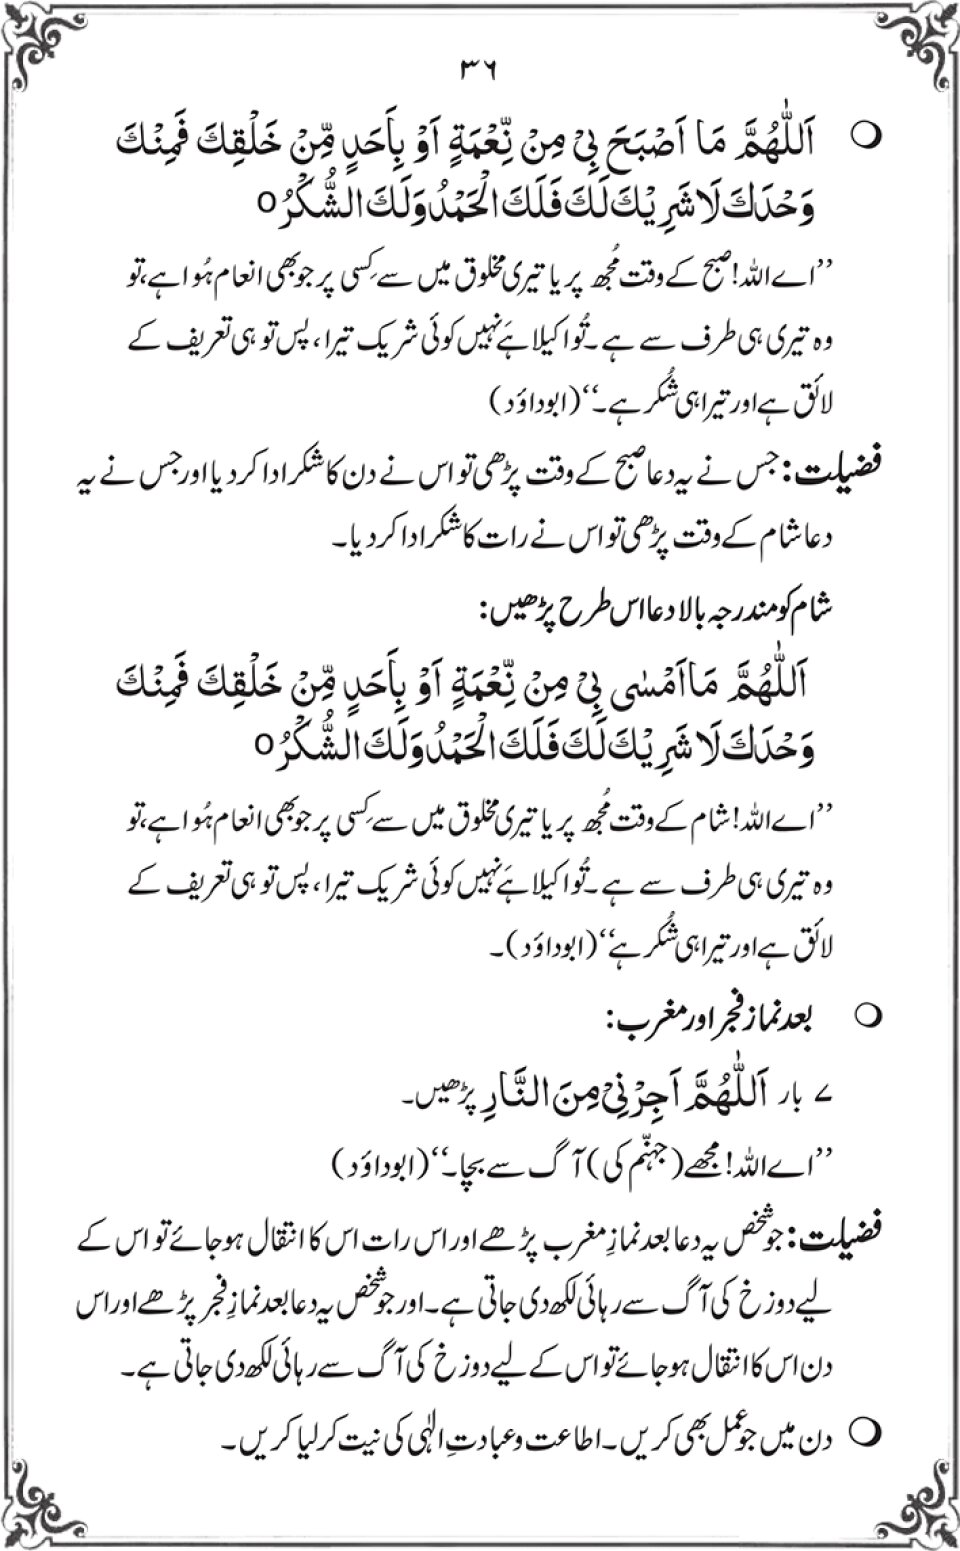 ۳۶
اَللّٰهُمَّ مَا اَصْبَحَ بِیْ مِنْ نِّعْمَةٍ اَوْ بِاَحَدٍ مِّنْ خَلْقِكَ فَمِنْكَ
وَحْدَكَ لَا شَرِيْكَ لَكَ فَلَكَ الْحَمْدُ وَلَكَ الشُّكْرُ o
’’اے اللہ! صبح کے وقت مُجھ پر یا تیری مخلوق میں سے کِسی پر جو بھی انعام ہُوا ہے، تو
وہ تیری ہی طرف سے ہے۔ تُو اکیلا ہے نہیں کوئی شریک تیرا، پس تو ہی تعریف کے
لائق ہے اور تیرا ہی شُکر ہے۔‘‘ (ابوداؤد)
فضیلت: جس نے یہ دعا صبح کے وقت پڑھی تو اس نے دن کا شکر ادا کر دیا اور جس نے یہ
دعا شام کے وقت پڑھی تو اس نے رات کا شکر ادا کر دیا۔
شام کو مندرجہ بالا دعا اس طرح پڑھیں:
اَللّٰهُمَّ مَا اَمْسٰی بِیْ مِنْ نِّعْمَةٍ اَوْ بِاَحَدٍ مِّنْ خَلْقِكَ فَمِنْكَ
وَحْدَكَ لَا شَرِيْكَ لَكَ فَلَكَ الْحَمْدُ وَلَكَ الشُّكْرُ o
’’اے اللہ! شام کے وقت مُجھ پر یا تیری مخلوق میں سے کِسی پر جو بھی انعام ہُوا ہے، تو
وہ تیری ہی طرف سے ہے۔ تُو اکیلا ہے نہیں کوئی شریک تیرا، پس تو ہی تعریف کے
لائق ہے اور تیرا ہی شُکر ہے‘‘ (ابوداؤد)۔
بعد نماز فجر اور مغرب:
۷ بار اَللّٰهُمَّ اَجِرْنِیْ مِنَ النَّارِ پڑھیں۔
’’اے اللہ! مجھے (جہنّم کی) آگ سے بچا۔‘‘ (ابوداؤد)
فضیلت: جو شخص یہ دعا بعد نمازِ مغرب پڑھے اور اس رات اس کا انتقال ہو جائے تو اس کے
لیے دوزخ کی آگ سے رہائی لکھ دی جاتی ہے۔ اور جو شخص یہ دعا بعد نمازِ فجر پڑھے اور اس
دن اس کا انتقال ہو جائے تو اس کے لیے دوزخ کی آگ سے رہائی لکھ دی جاتی ہے۔
دن میں جو عمل بھی کریں۔ اطاعت و عبادتِ الٰہی کی نیت کر لیا کریں۔